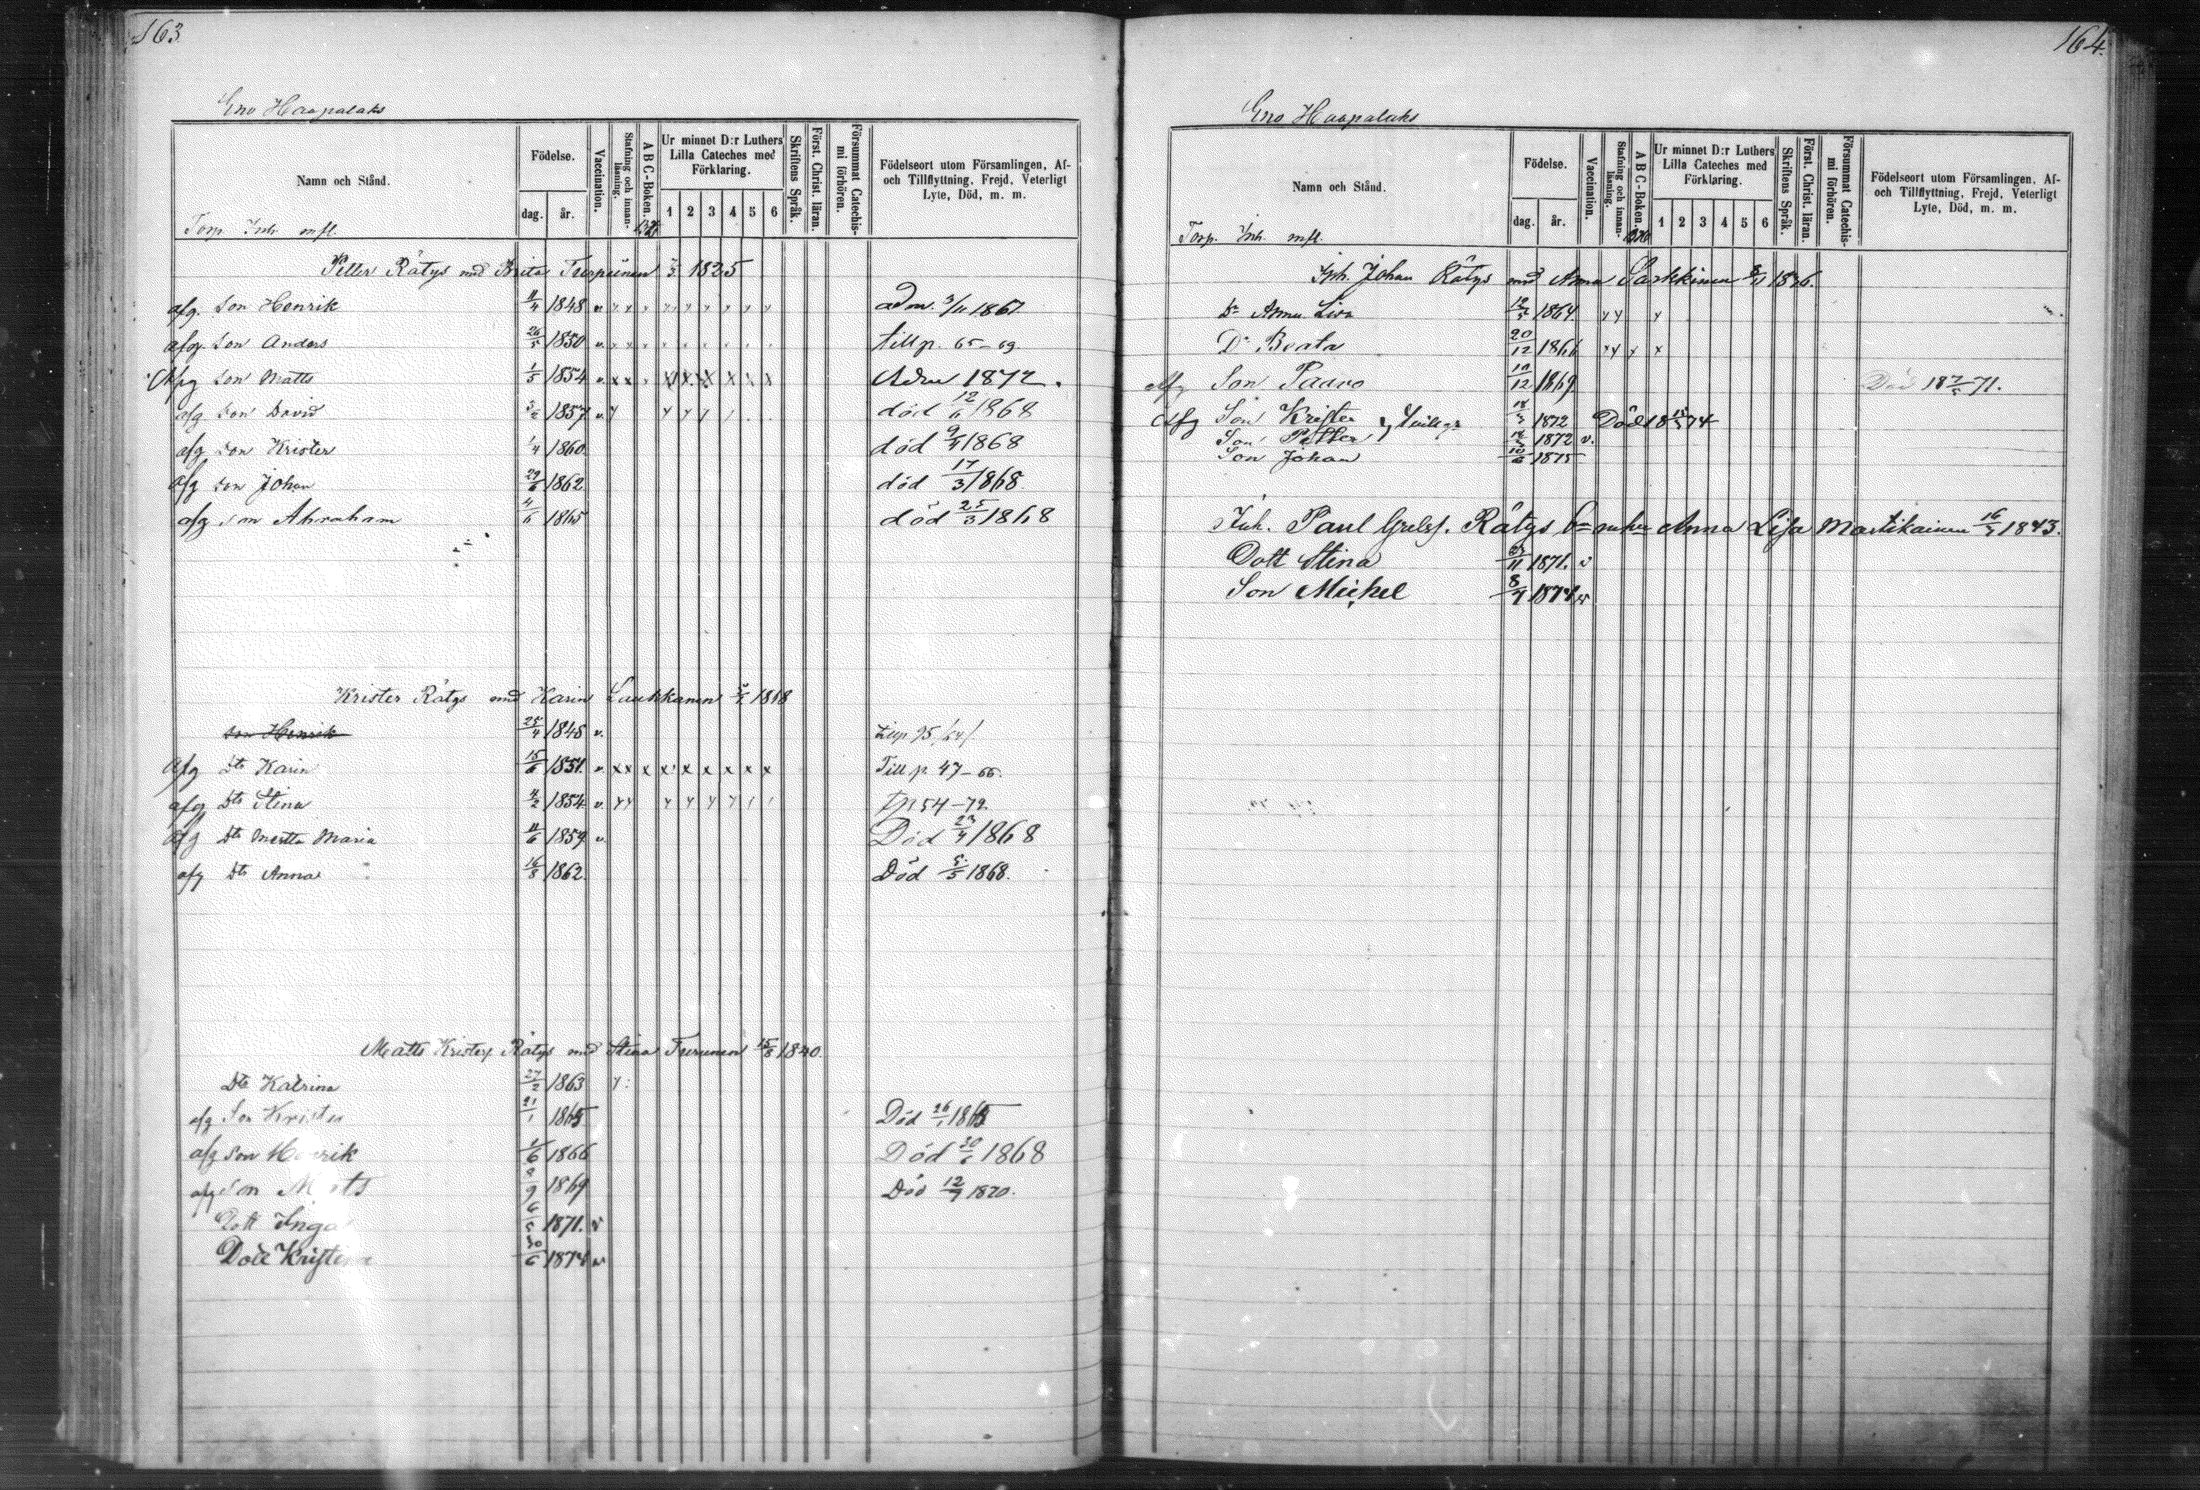 163.
Eno Haapalaks
Namn och Stånd.
Födelse.
dag. år.
Vaccination.
Stafning och innanläsning.
A B C-Boken.
Ur minnet D:r Luthers Lilla Cateches med Förklaring.
1 2 3 4 5 6
Skriftens Språk.
Först. Christ. läran.
Försummat Catechismi förhören.
Födelseort utom Församlingen, Af- och Tillflyttning, Frejd, Veterligt Lyte, Död, m. m.
Torp. Inh. mfl.
Petter Rätys med Brita 1825
afg. son Henrik 11/4 1848 v adm. 3/11 1867
afg. son Anders 26/5 1850 v. till p. 65-69
Afg son Matts 1/5 1854 v Adm 1872.
afg son David 1857 v död 12/6 1868
afg son Krister 1860 död 9/4 1868
afg son Johan 29/6 1862 död 17/3 1868
afg son Abraham 4/6 1865 död 25/3 1868
Krister Rätys med Karin Laukkanen 1818
son Henrik 25/4 1848 v.
Afg Dtr Karin 15/6 1851 v x x x x x x x x x Till p. 47-66.
afg Dtr Stina 4/2 1854 v tp 54-72
afg Dtr Martta Maria 11/6 1859 v. Död 23/4 1868
afg Dtr Anna 16/8 1862 Död 5/5 1868.
Matts Kristerf Rätys med Stina Turunen 15/8 1840.
Dtr Katrina 27/2 1863
afg Son Krister 21/1 1865 Död 26/1 1865
afg son Henrik 1/6 1866 Död 30/6 1868
afg Son Mats 8/9 1869 Död 12/7 1870.
Dott Inga 1871. v
Dott Kristina 30/6 1874 v
164.
Eno Haapalaks
Namn och Stånd.
Födelse.
dag. år.
Vaccination.
Stafning och innanläsning.
A B C-Boken.
Ur minnet D:r Luthers Lilla Cateches med Förklaring.
1 2 3 4 5 6
Skriftens Språk.
Först. Christ. läran.
Försummat Catechismi förhören.
Födelseort utom Församlingen, Af- och Tillflyttning, Frejd, Veterligt Lyte, Död, m. m.
Torp. Inh. mfl.
Inh. Johan Rätys med Anna Sarkkinen 1836.
Dr Anna Lisa 1864
Dr Beata 20/12 1866
Afg Son Paavo 10/12 1869 Död 71.
Afg Son Krister 1872 Död 18 74
Son Petter 1872 v.
Son Johan 10/6 1875
Inh. Paul Rätys Anna Lisa Martikainen 1843.
Dott Stina 1871. v
Son Michel 1874 v